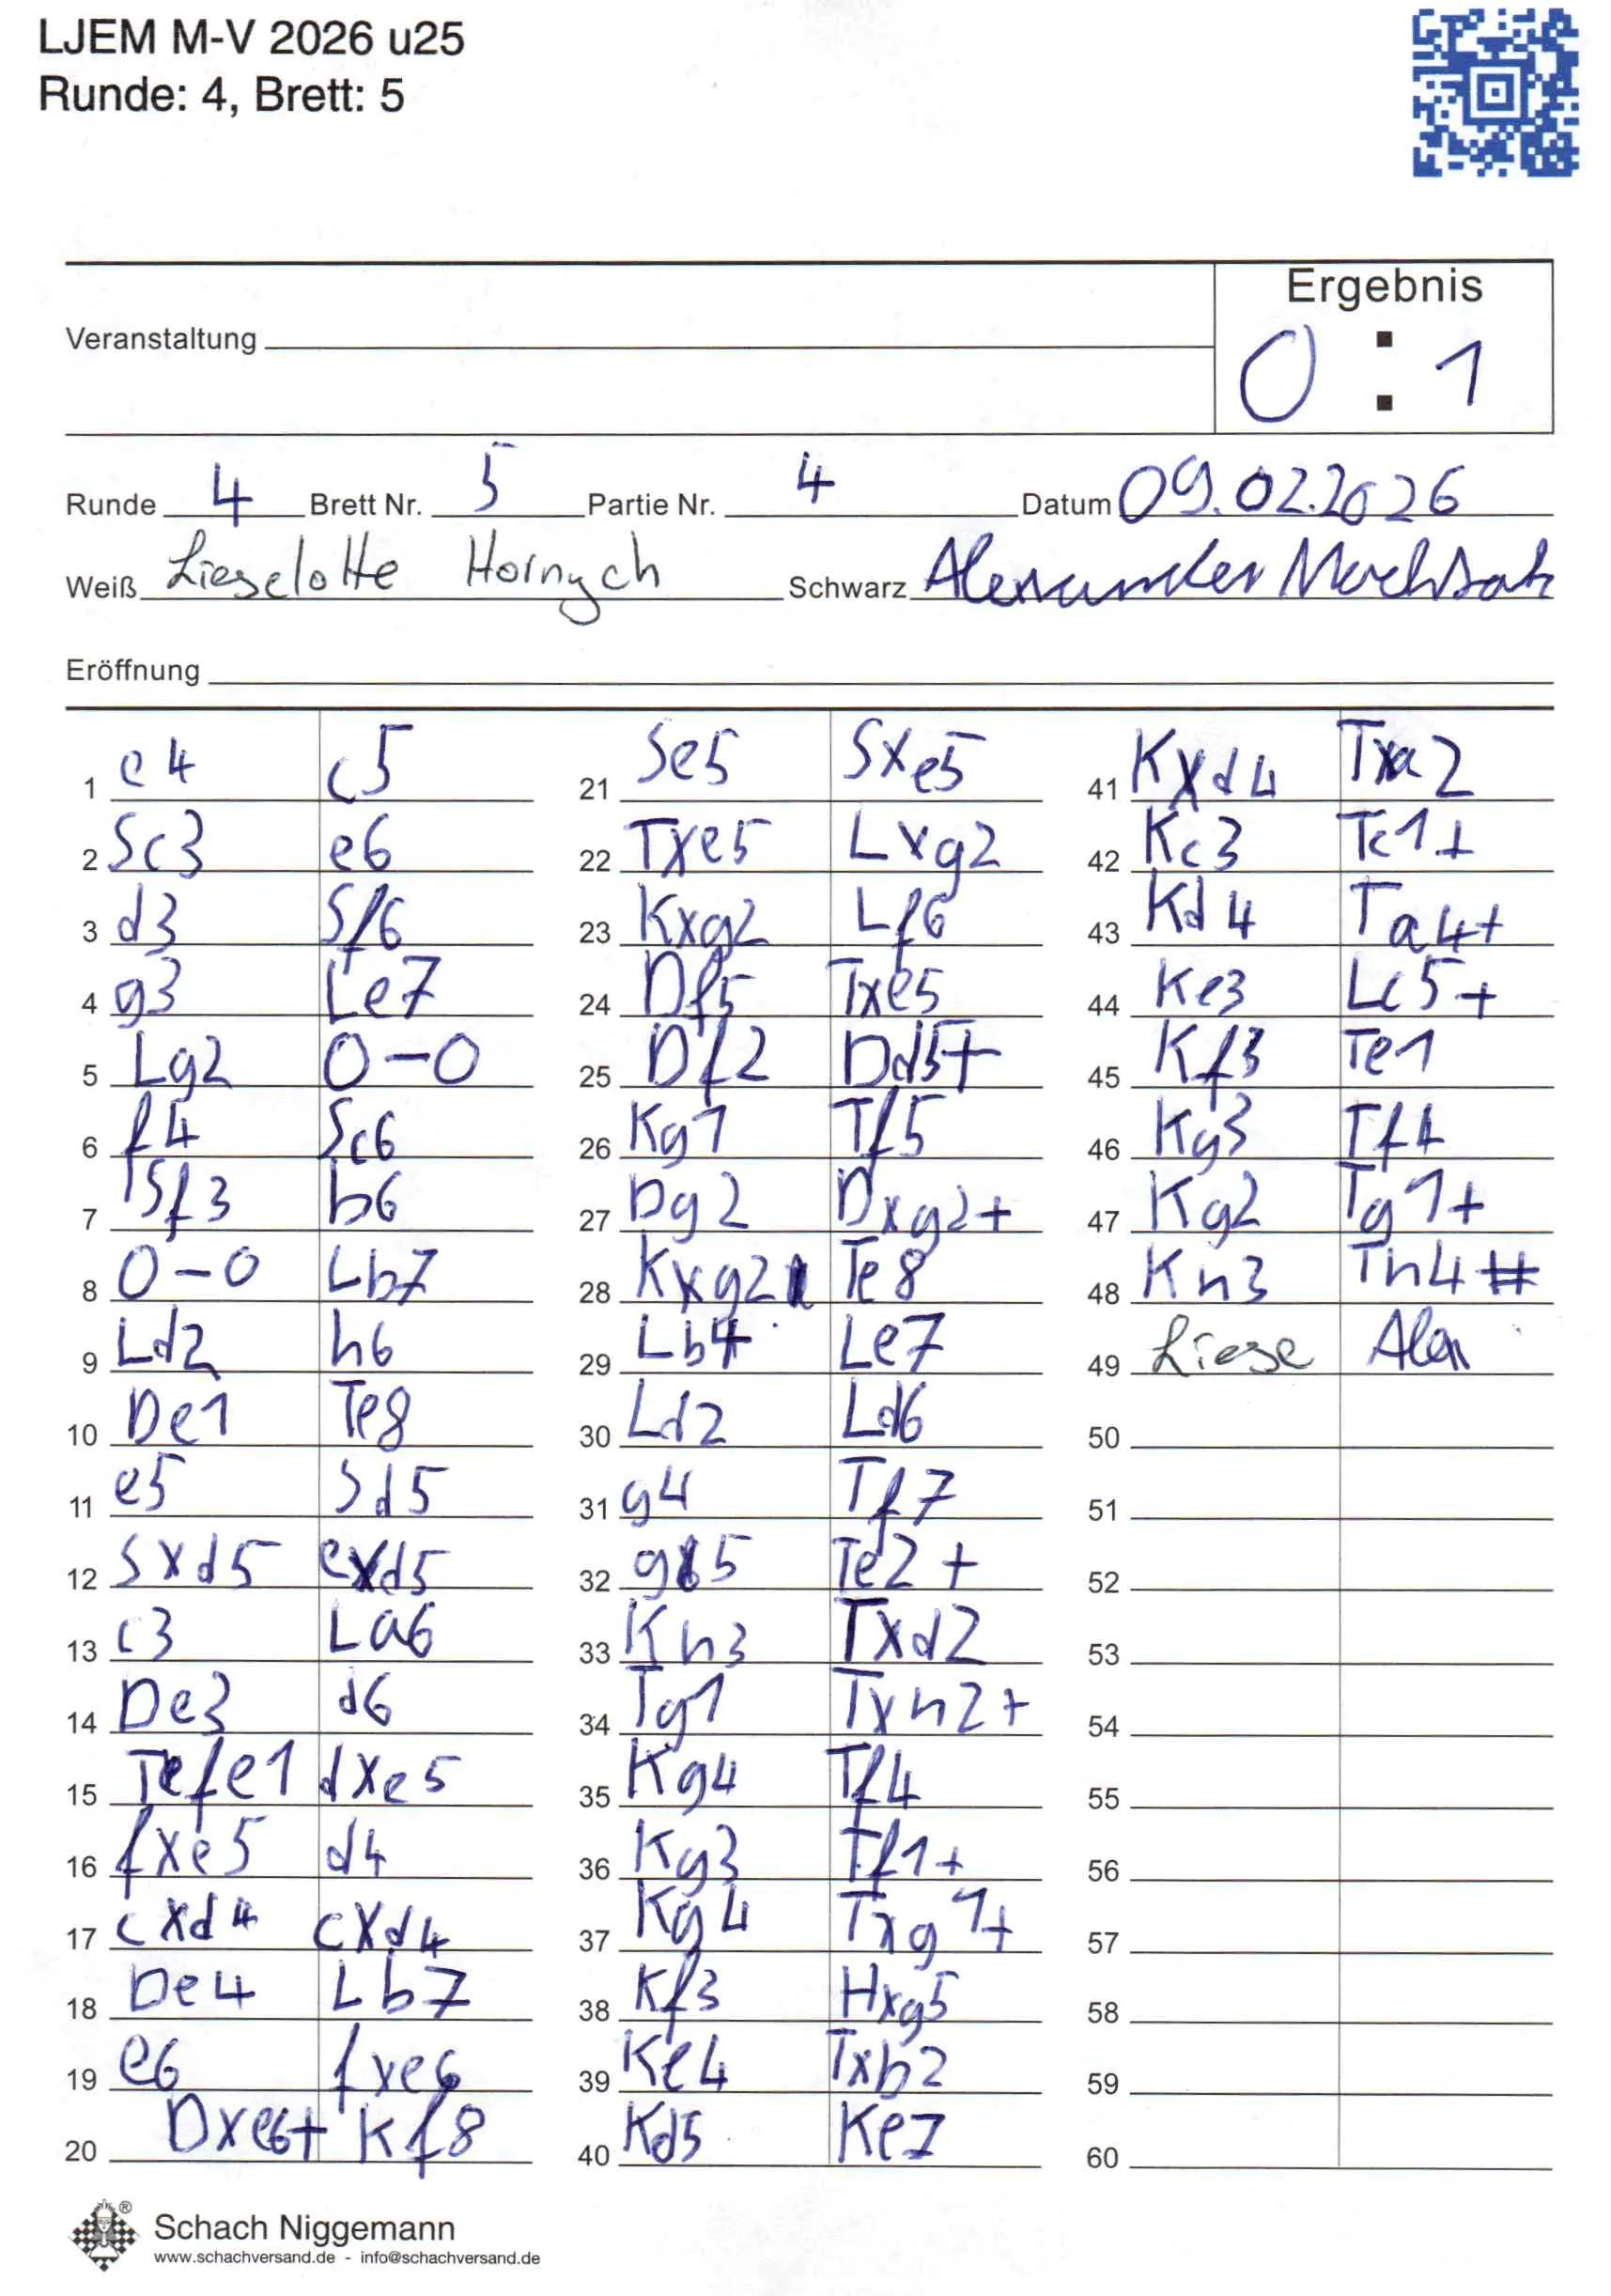 LJEM M-V 2026 u25
Runde: 4, Brett: 5
Ergebnis
Veranstaltung
0 : 1
Runde 4 Brett Nr. 5 Partie Nr. 4 Datum 09.02.2026
Weiß Lieselotte Hornych Schwarz Alexander
Eröffnung
1 e4 c5 21 Se5 Sxe5 41 Kxd4 Txa2
2 Sc3 e6 22 Txe5 Lxg2 42 Kc3 Tc1+
3 d3 Sf6 23 Kxg2 Lf6 43 Kd4 Ta4+
4 g3 Le7 24 Df5 Txe5 44 Ke3 Lc5+
5 Lg2 0-0 25 Df2 Dd5+ 45 Kf3 Te1
6 f4 Sc6 26 Kg1 Tf5 46 Kg3 Tf4
7 Sf3 b6 27 Dg2 Dxg2+ 47 Kg2 Tg1+
8 0-0 Lb7 28 Kxg2 Te8 48 Kh3 Th4#
9 Ld2 h6 29 Lb4 Le7 49 Liese Alex
10 De1 Te8 30 Ld2 Ld6 50
11 e5 Sd5 31 g4 Tf7 51
12 Sxd5 exd5 32 g5 Te2+ 52
13 c3 La6 33 Kh3 Txd2 53
14 De3 d6 34 Tg1 Txh2+ 54
15 Tfe1 dxe5 35 Kg4 Tf4 55
16 fxe5 d4 36 Kg3 Tf1+ 56
17 cxd4 cxd4 37 Kg4 Txg1+ 57
18 De4 Lb7 38 Kf3 Hxg5 58
19 e6 fxe6 39 Ke4 Txb2 59
20 Dxe6+ Kf8 40 Kd5 Ke7 60
Schach Niggemann
www.schachversand.de - info@schachversand.de